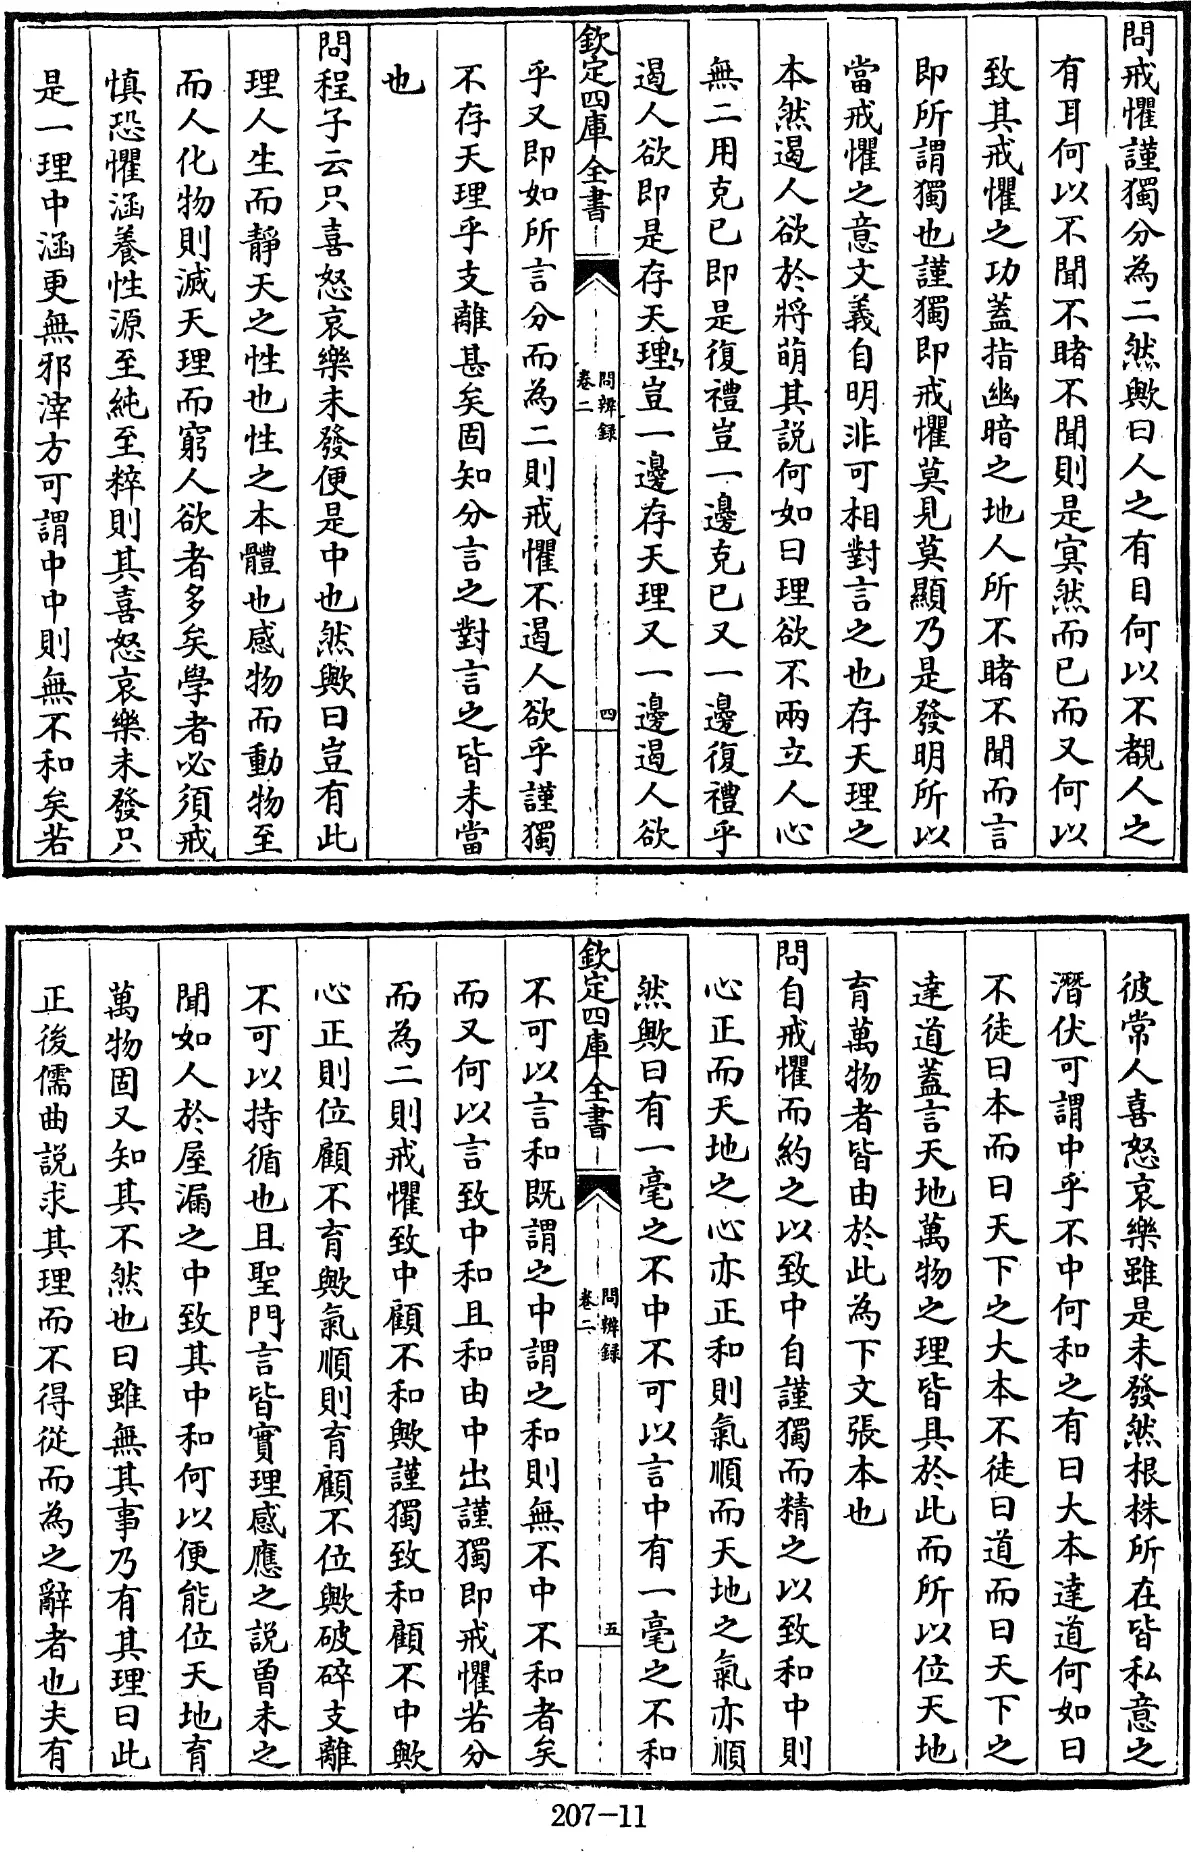 問戒懼謹獨分為二然歟曰人之有目何以不覩人之
有耳何以不聞不睹不聞則是㝠然而已而又何以
致其戒懼之功蓋指幽暗之地人所不睹不聞而言
即所謂獨也謹獨即戒懼莫見莫顯乃是發明所以
當戒懼之意文義自明非可相對言之也存天理之
本然遏人欲於將萌其説何如曰理欲不兩立人心
無二用克己即是復禮豈一邊克己又一邊復禮乎
遏人欲即是存天理豈一邊存天理又一邊遏人欲
欽定四庫全書
問辨録
卷二
四
乎又即如所言分而為二則戒懼不遏人欲乎謹獨
不存天理乎支離甚矣固知分言之對言之皆未當
也
問程子云只喜怒哀樂未發便是中也然歟曰豈有此
理人生而靜天之性也性之本體也感物而動物至
而人化物則滅天理而窮人欲者多矣學者必須戒
慎恐懼涵養性源至純至粹則其喜怒哀樂未發只
是一理中涵更無邪滓方可謂中中則無不和矣若
彼常人喜怒哀樂雖是未發然根株所在皆私意之
潛伏可謂中乎不中何和之有曰大本達道何如曰
不徒曰本而曰天下之大本不徒曰道而曰天下之
達道蓋言天地萬物之理皆具於此而所以位天地
育萬物者皆由於此為下文張本也
問自戒懼而約之以致中自謹獨而精之以致和中則
心正而天地之心亦正和則氣順而天地之氣亦順
然歟曰有一毫之不中不可以言中有一毫之不和
欽定四庫全書
問辨録
卷二
五
不可以言和既謂之中謂之和則無不中不和者矣
而又何以言致中和且和由中出謹獨即戒懼若分
而為二則戒懼致中顧不和歟謹獨致和顧不中歟
心正則位顧不育歟氣順則育顧不位歟破碎支離
不可以持循也且聖門言皆實理感應之説曽未之
聞如人於屋漏之中致其中和何以便能位天地育
萬物固又知其不然也曰雖無其事乃有其理曰此
正後儒曲説求其理而不得從而為之辭者也夫有
207-11